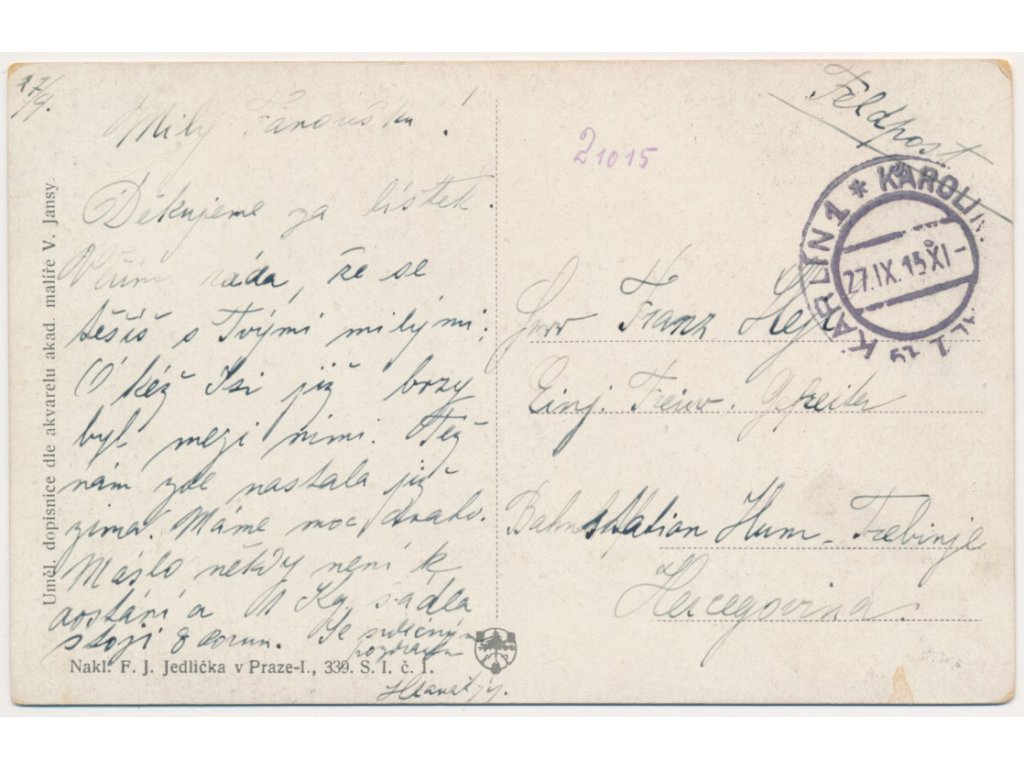 27/9.
Milý Fanoušku!
Děkujeme za lístek.
ráda, že se
těšíš s Tvými milými.
Ó kéž jsi již brzy
byl mezi nimi. Též
nám zde nastala již
zima. Máme moc draho.
Máslo někdy není k
dostání a 1 Kg sádla
stojí 8 corun. Se srdečným
pozdravem
Uměl. dopisnice dle akvarelu akad. malíře V. Jansy.
Nakl. F. J. Jedlička v Praze-I., 339. S. I. č. 1.
Feldpost
21015
KARLÍN 1 * KAROLIN
27.IX.15 XI-
Herr Franz
Einj. Freiw. Gefreiter
Bahnstation Hum - Trebinje
Hercegovina.